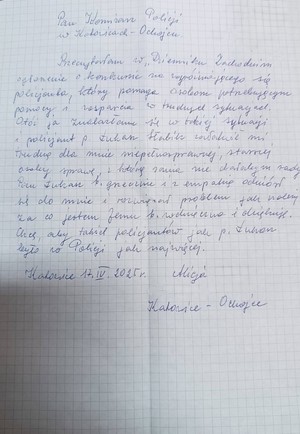 Pan Komisarz Policji
w Katowicach - Ochojcu
Przeczytałam w „Dzienniku Zachodnim
ogłoszenie o konkursie na wyróżniającego się
policjanta, który pomaga osobom potrzebującym
pomocy i wsparcia w trudnych sytuacjach.
Otóż ja znalazłam się w takiej sytuacji
i policjant p. Łukasz załatwił mi
trudną dla mnie niepełnosprawnej, starszej
osoby sprawę, z którą sama nie dałabym rady
Pan Łukasz b. grzecznie i z empatią odniósł
się do mnie i rozwiązał problem jak należy
za co jestem Jemu b. wdzięczna i dziękuję.
Chcę, aby takich policjantów jak p. Łukasz
było w Policji jak najwięcej.
Katowice 17.IV 2025r. Alicja
Katowice - Ochojec